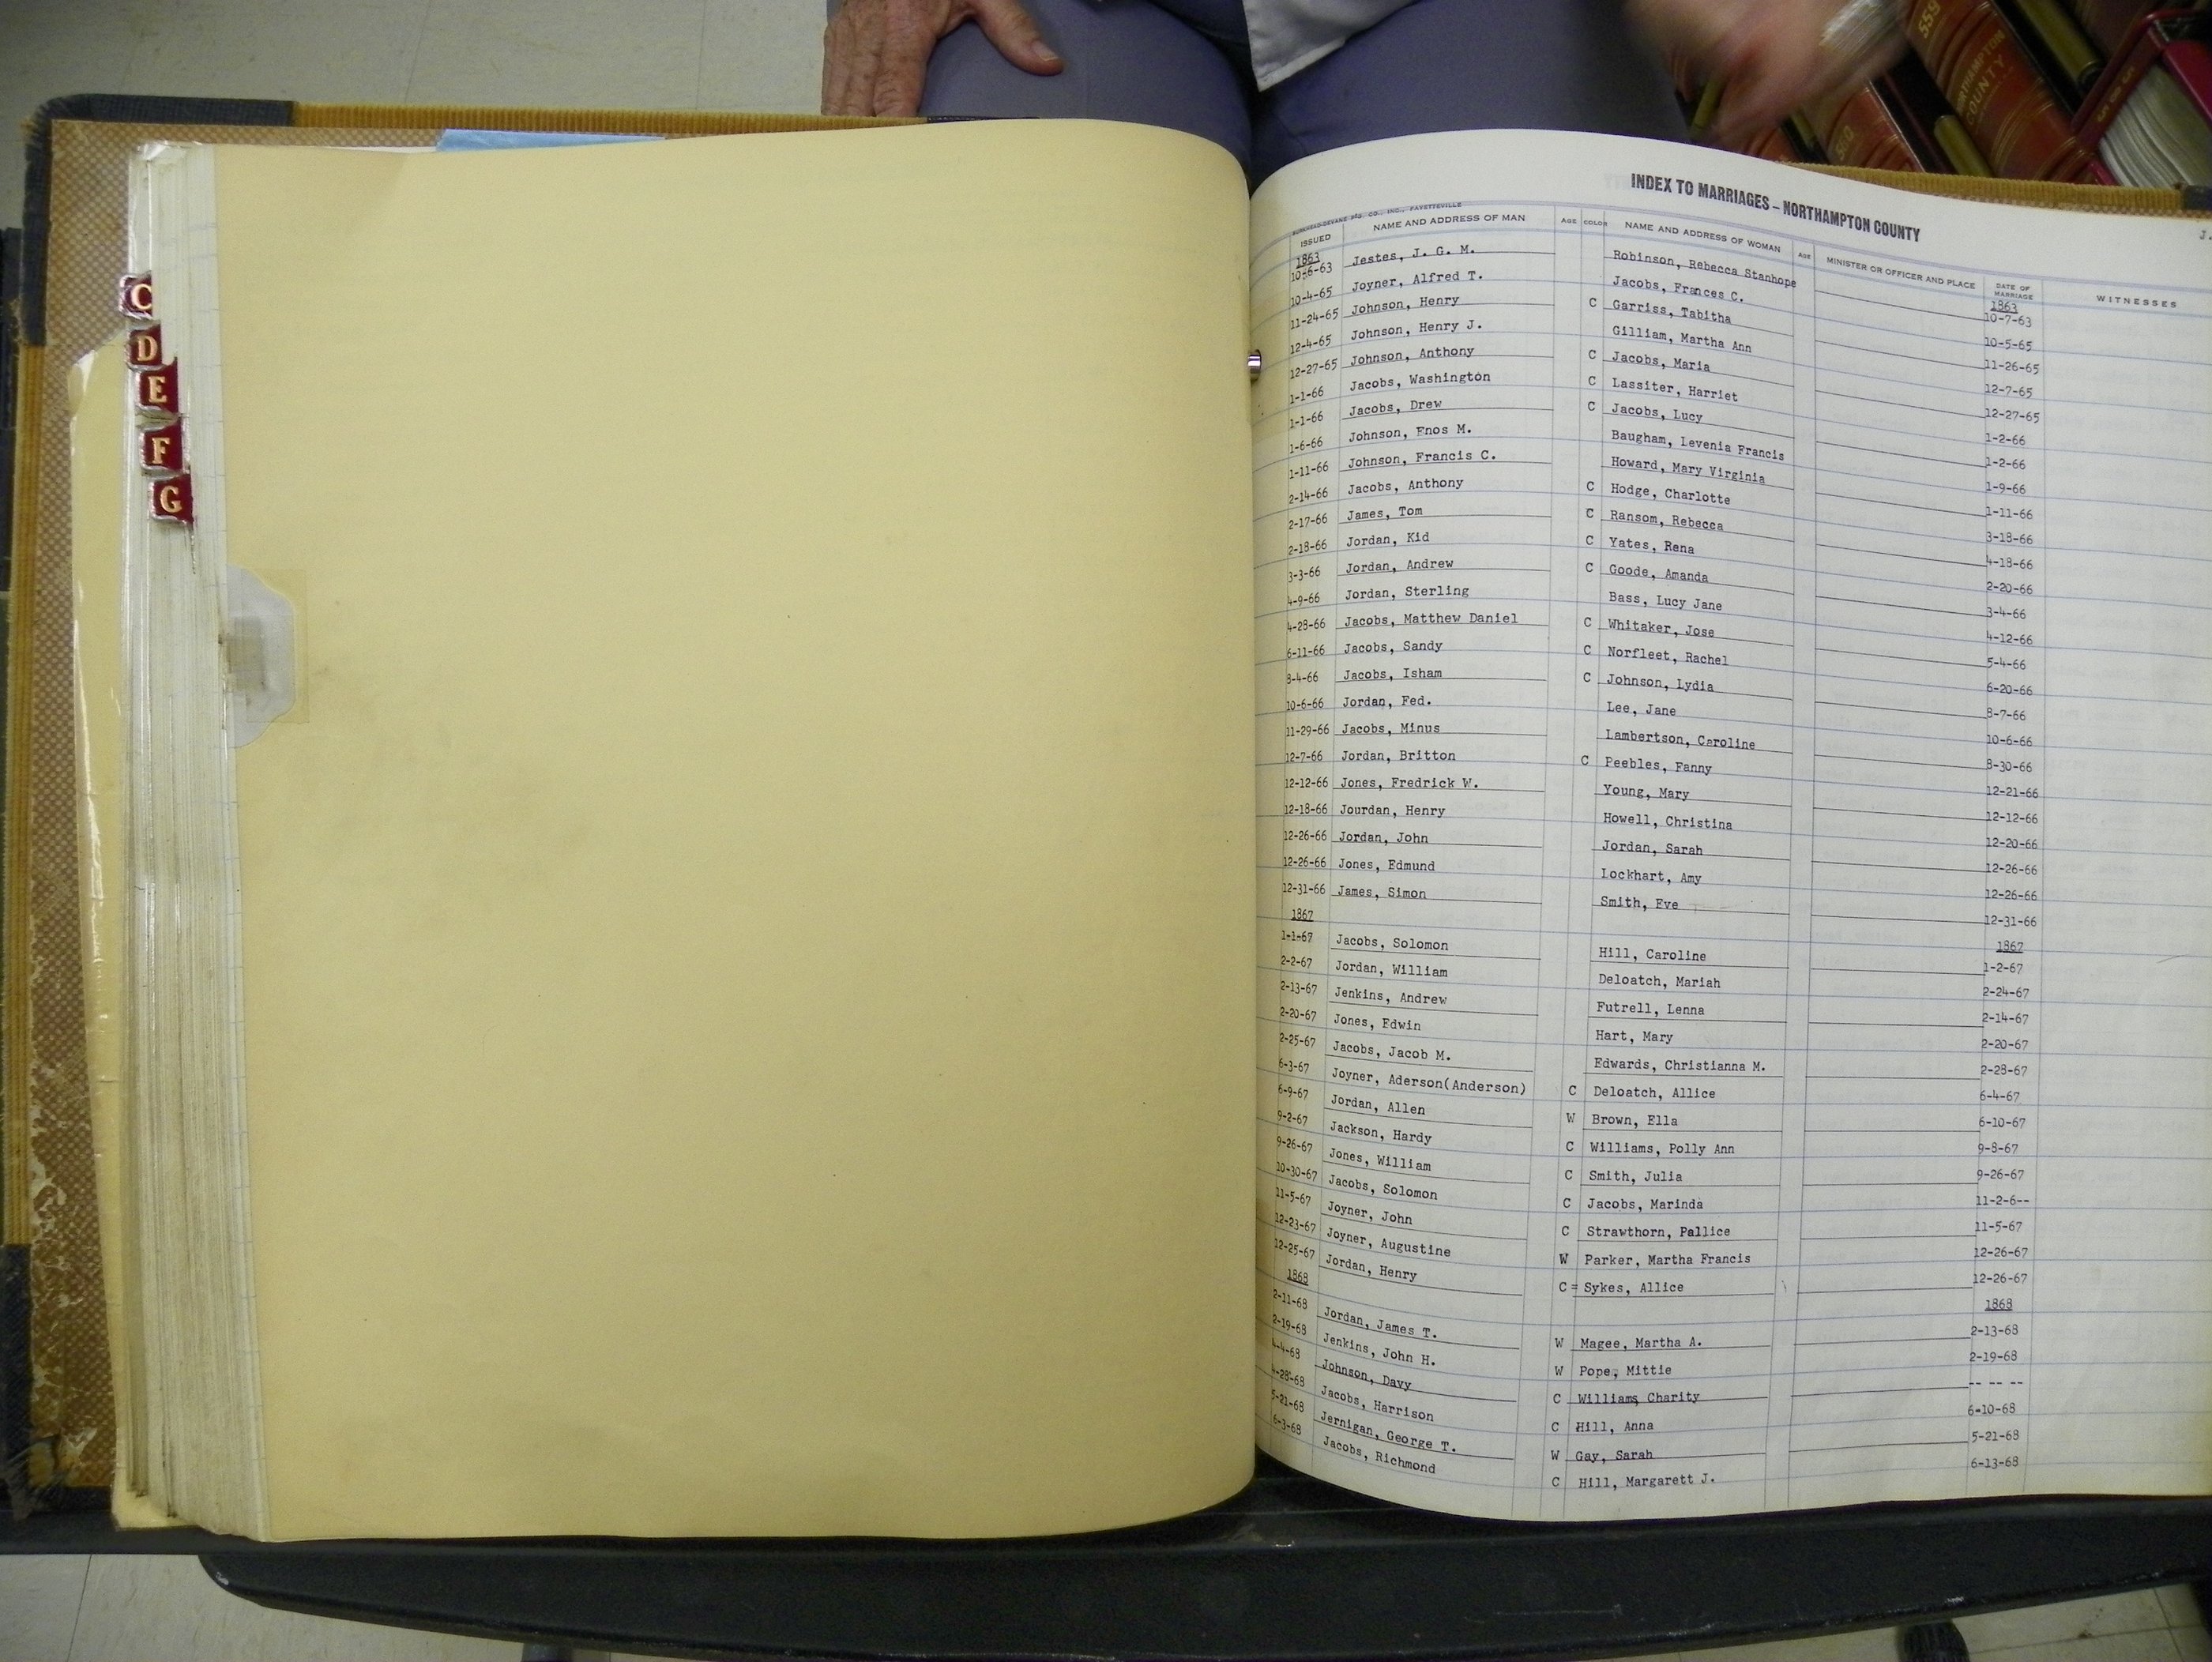 C
D
E
F
G
559
NORTHAMPTON
COUNTY
INDEX TO MARRIAGES – NORTHAMPTON COUNTY
J.
ISSUED NAME AND ADDRESS OF MAN AGE COLOR NAME AND ADDRESS OF WOMAN AGE MINISTER OR OFFICER AND PLACE DATE OF MARRIAGE WITNESSES
1863 1863
10-6-63 Jestes, J. G. M. Robinson, Rebecca Stanhope 10-7-63
10-4-65 Joyner, Alfred T. Jacobs, Frances C. 10-5-65
11-24-65 Johnson, Henry C Garriss, Tabitha 11-26-65
12-4-65 Johnson, Henry J. Gilliam, Martha Ann 12-7-65
12-27-65 Johnson, Anthony C Jacobs, Maria 12-27-65
1-1-66 Jacobs, Washington C Lassiter, Harriet 1-2-66
1-1-66 Jacobs, Drew C Jacobs, Lucy 1-2-66
1-6-66 Johnson, Enos M. Baugham, Levenia Francis 1-9-66
1-11-66 Johnson, Francis C. Howard, Mary Virginia 1-11-66
2-14-66 Jacobs, Anthony C Hodge, Charlotte 3-18-66
2-17-66 James, Tom C Ransom, Rebecca 4-18-66
2-18-66 Jordan, Kid C Yates, Rena 2-20-66
3-3-66 Jordan, Andrew C Goode, Amanda 3-4-66
4-9-66 Jordan, Sterling Bass, Lucy Jane 4-12-66
4-28-66 Jacobs, Matthew Daniel C Whitaker, Jose 5-4-66
6-11-66 Jacobs, Sandy C Norfleet, Rachel 6-20-66
8-4-66 Jacobs, Isham C Johnson, Lydia 8-7-66
10-6-66 Jordan, Fed. Lee, Jane 10-6-66
11-29-66 Jacobs, Minus Lambertson, Caroline 8-30-66
12-7-66 Jordan, Britton C Peebles, Fanny 12-21-66
12-12-66 Jones, Fredrick W. Young, Mary 12-12-66
12-18-66 Jourdan, Henry Howell, Christina 12-20-66
12-26-66 Jordan, John Jordan, Sarah 12-26-66
12-26-66 Jones, Edmund Lockhart, Amy 12-26-66
12-31-66 James, Simon Smith, Eve 12-31-66
1867 1867
1-1-67 Jacobs, Solomon Hill, Caroline 1-2-67
2-2-67 Jordan, William Deloatch, Mariah 2-24-67
2-13-67 Jenkins, Andrew Futrell, Lenna 2-14-67
2-20-67 Jones, Edwin Hart, Mary 2-20-67
2-25-67 Jacobs, Jacob M. Edwards, Christianna M. 2-28-67
6-3-67 Joyner, Aderson(Anderson) C Deloatch, Allice 6-4-67
6-9-67 Jordan, Allen W Brown, Ella 6-10-67
9-2-67 Jackson, Hardy C Williams, Polly Ann 9-8-67
9-26-67 Jones, William C Smith, Julia 9-26-67
10-30-67 Jacobs, Solomon C Jacobs, Marinda 11-2-6--
11-5-67 Joyner, John C Strawthorn, Pallice 11-5-67
12-23-67 Joyner, Augustine W Parker, Martha Francis 12-26-67
12-25-67 Jordan, Henry C = Sykes, Allice 12-26-67
1868 1868
2-11-68 Jordan, James T. W Magee, Martha A. 2-13-68
2-19-68 Jenkins, John H. W Pope, Mittie 2-19-68
4-4-68 Johnson, Davy C Williams, Charity -- -- --
4-28-68 Jacobs, Harrison C Hill, Anna 6-10-68
5-21-68 Jernigan, George T. W Gay, Sarah 5-21-68
6-3-68 Jacobs, Richmond C Hill, Margarett J. 6-13-68